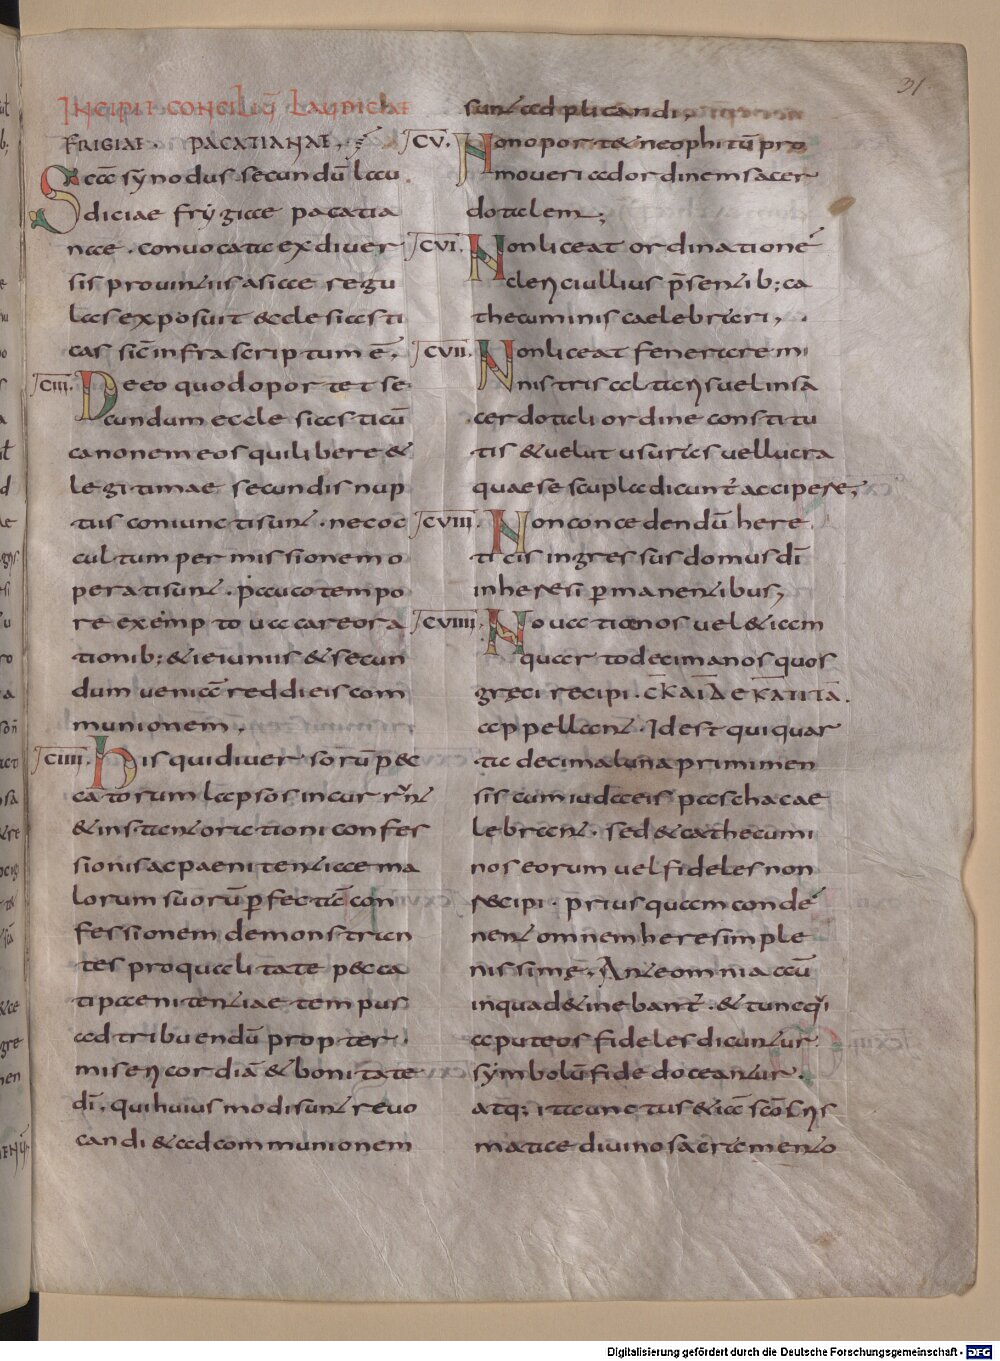 INCIPIT CONCILIŪ LAUDICIAE
FRIGIAE. PACATIANAE.
Sca synodus secundū lau
diciae frygiae pacatia
nae. convocata ex diver
sis provintiis asiae regu
las exposuit ecclesiasti
cas sic̄ infra scriptum ē.
CIII. De eo quod oportet se
cundum ecclesiasticū
canonem eos qui libere &
legitimae secundis nup
tiis coniuncti sunt. nec oc
cultum permissionem o
perati sunt. pauco tempo
re exempto ut vacare ora
tionib; & ieiuniis & secun
dum veniā reddi eis com
munionem.
CIIII. His qui diversorū pec
catorum lapsos incurrunt
& instant orationi confes
sionis ac paenitentiae ma
lorum suorū ꝑfectā con
fessionem demonstran
tes pro qualitate pecca
ti paenitentiae tempus
adtribuendū propter
misericordiā & bonitate
dī. qui huiusmodi sunt revo
candi & ad communionem
31
sunt adplicandi,
CV. Non oport& neophitū pro
moveri ad ordinem sacer
dotalem;
CVI. Non liceat ordinationē
cleri ciullius p̄sentib; ca
thecuminis caelebrari,
CVII. Non liceat fenerare mi
nistris altaris vel in sa
cerdotali ordine constitu
tis & velut usuras vel lucra
quae sescupla dicunt̄ accipere;
CVIII. Non concedendū here
ticis ingressus domus dī
in heresi ꝑmanentibus;
CVIIII. Novatianos vel &iam
quartodecimanos quos
greci recipi. CKAIΔEKATITA.
appellant. Id est qui quar
ta decima luna primi men
sis cum iudaeis pascha cae
lebrant. sed & cathecumi
nos eorum vel fideles non
recipi. prius quam condē
nent omnem heresim ple
nissime. Ante omnia aū
in qua d&inebant̄. & tunc q̄i
aput eos fideles dicuntur
symbolū fide doceantur.
atq; ita unctus &iā sc̄o cris
matae divino sacramento